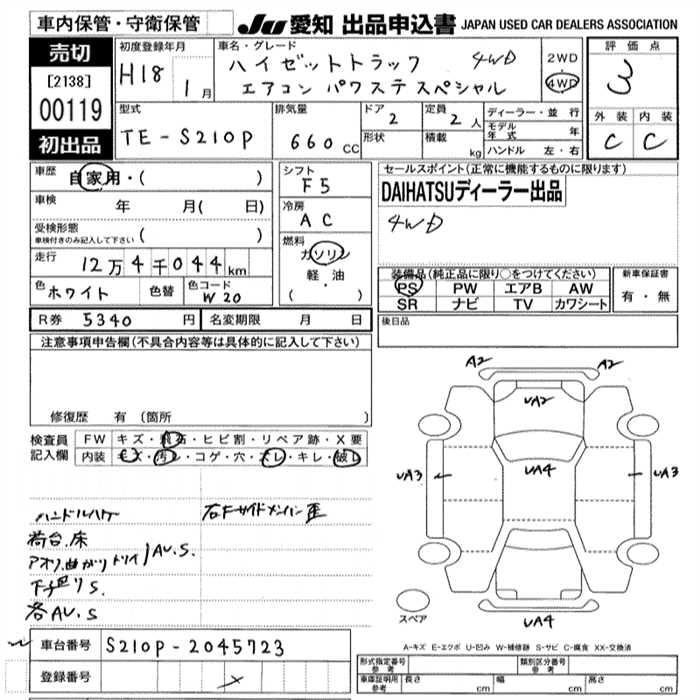 車内保管・守衛保管
JU 愛知 出品申込書 JAPAN USED CAR DEALERS ASSOCIATION
売切
[2138]
00119
初出品
初度登録年月
H18 1月
車名・グレード
ハイゼットトラック 4WD
エアコン パワステ スペシャル
2WD
・
4WD
評価点
3
外装 内装
C C
型式
TE-S210P
排気量
660 CC
ドア
2
形状
定員
2人
積載
kg
ディーラー・並行
モデル年式 年
ハンドル 左・右
車歴
自家用・( )
車検
年 月( 日)
受検形態
車検付きのみ記入して下さい ( )
走行
12万4千044km
色
ホワイト
色替
色コード
W20
シフト
F5
冷房
AC
燃料
ガソリン
軽・油
( ・ )
セールスポイント(正常に機能するものに限ります)
DAIHATSUディーラー出品
4WD
装備品(純正品に限り○をつけてください)
PS PW エアB AW
SR ナビ TV カワシート
新車保証書
有・無
後日品
R券 5340円
名変期限 月 日
注意事項申告欄(不具合内容等は具体的に記入して下さい)
修復歴 有(箇所 )
検査員記入欄
FW キズ・飛石・ヒビ割・リペア跡・X要
内装 キズ・汚レ・コゲ・穴・スレ・キレ・破レ
ハンドルハゲ
右Fサイドメンバー歪
荷台.床
アオリ.曲がり
AU.S.
下
S.
各AU.S
A2
A2
UA2
UA3
UA4
UA3
UA4
スペア
A-キズ E-エクボ U-凹み W-補修跡 S-サビ C-腐食 XX-交換済
車台番号 S210P-2045723
登録番号
形式指定番号 参考
類別区分番号 参考
車庫証明用 参考 長さ cm 幅 cm 高さ cm